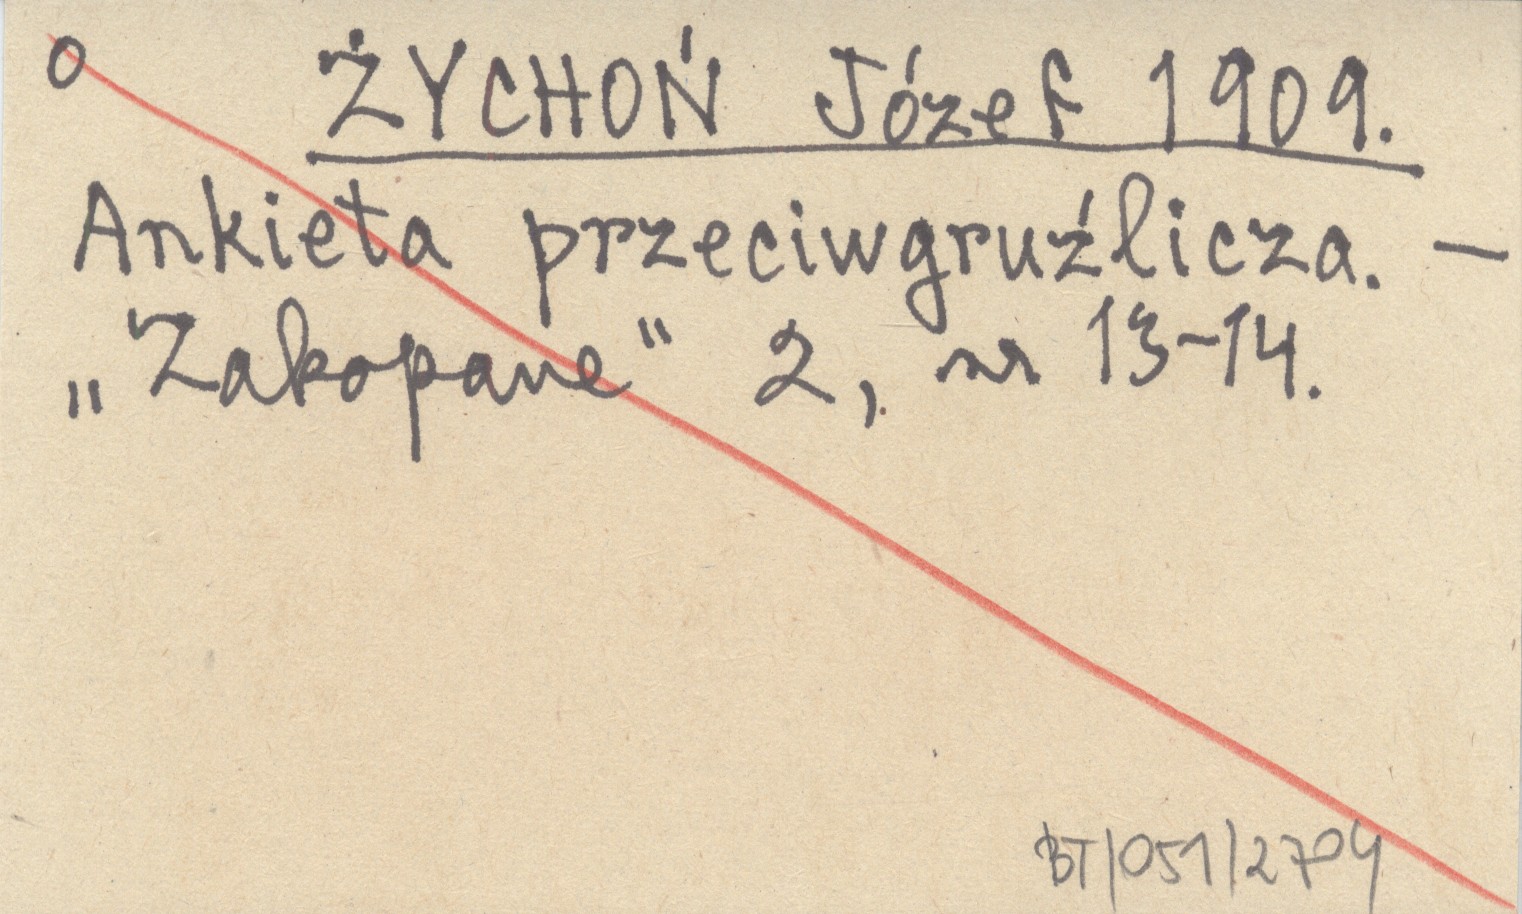 o ŻYCHOŃ Józef 1909.
Ankieta przeciwgruźlicza. —
„Zakopane" 2, nr 13-14.
BT/051/2704